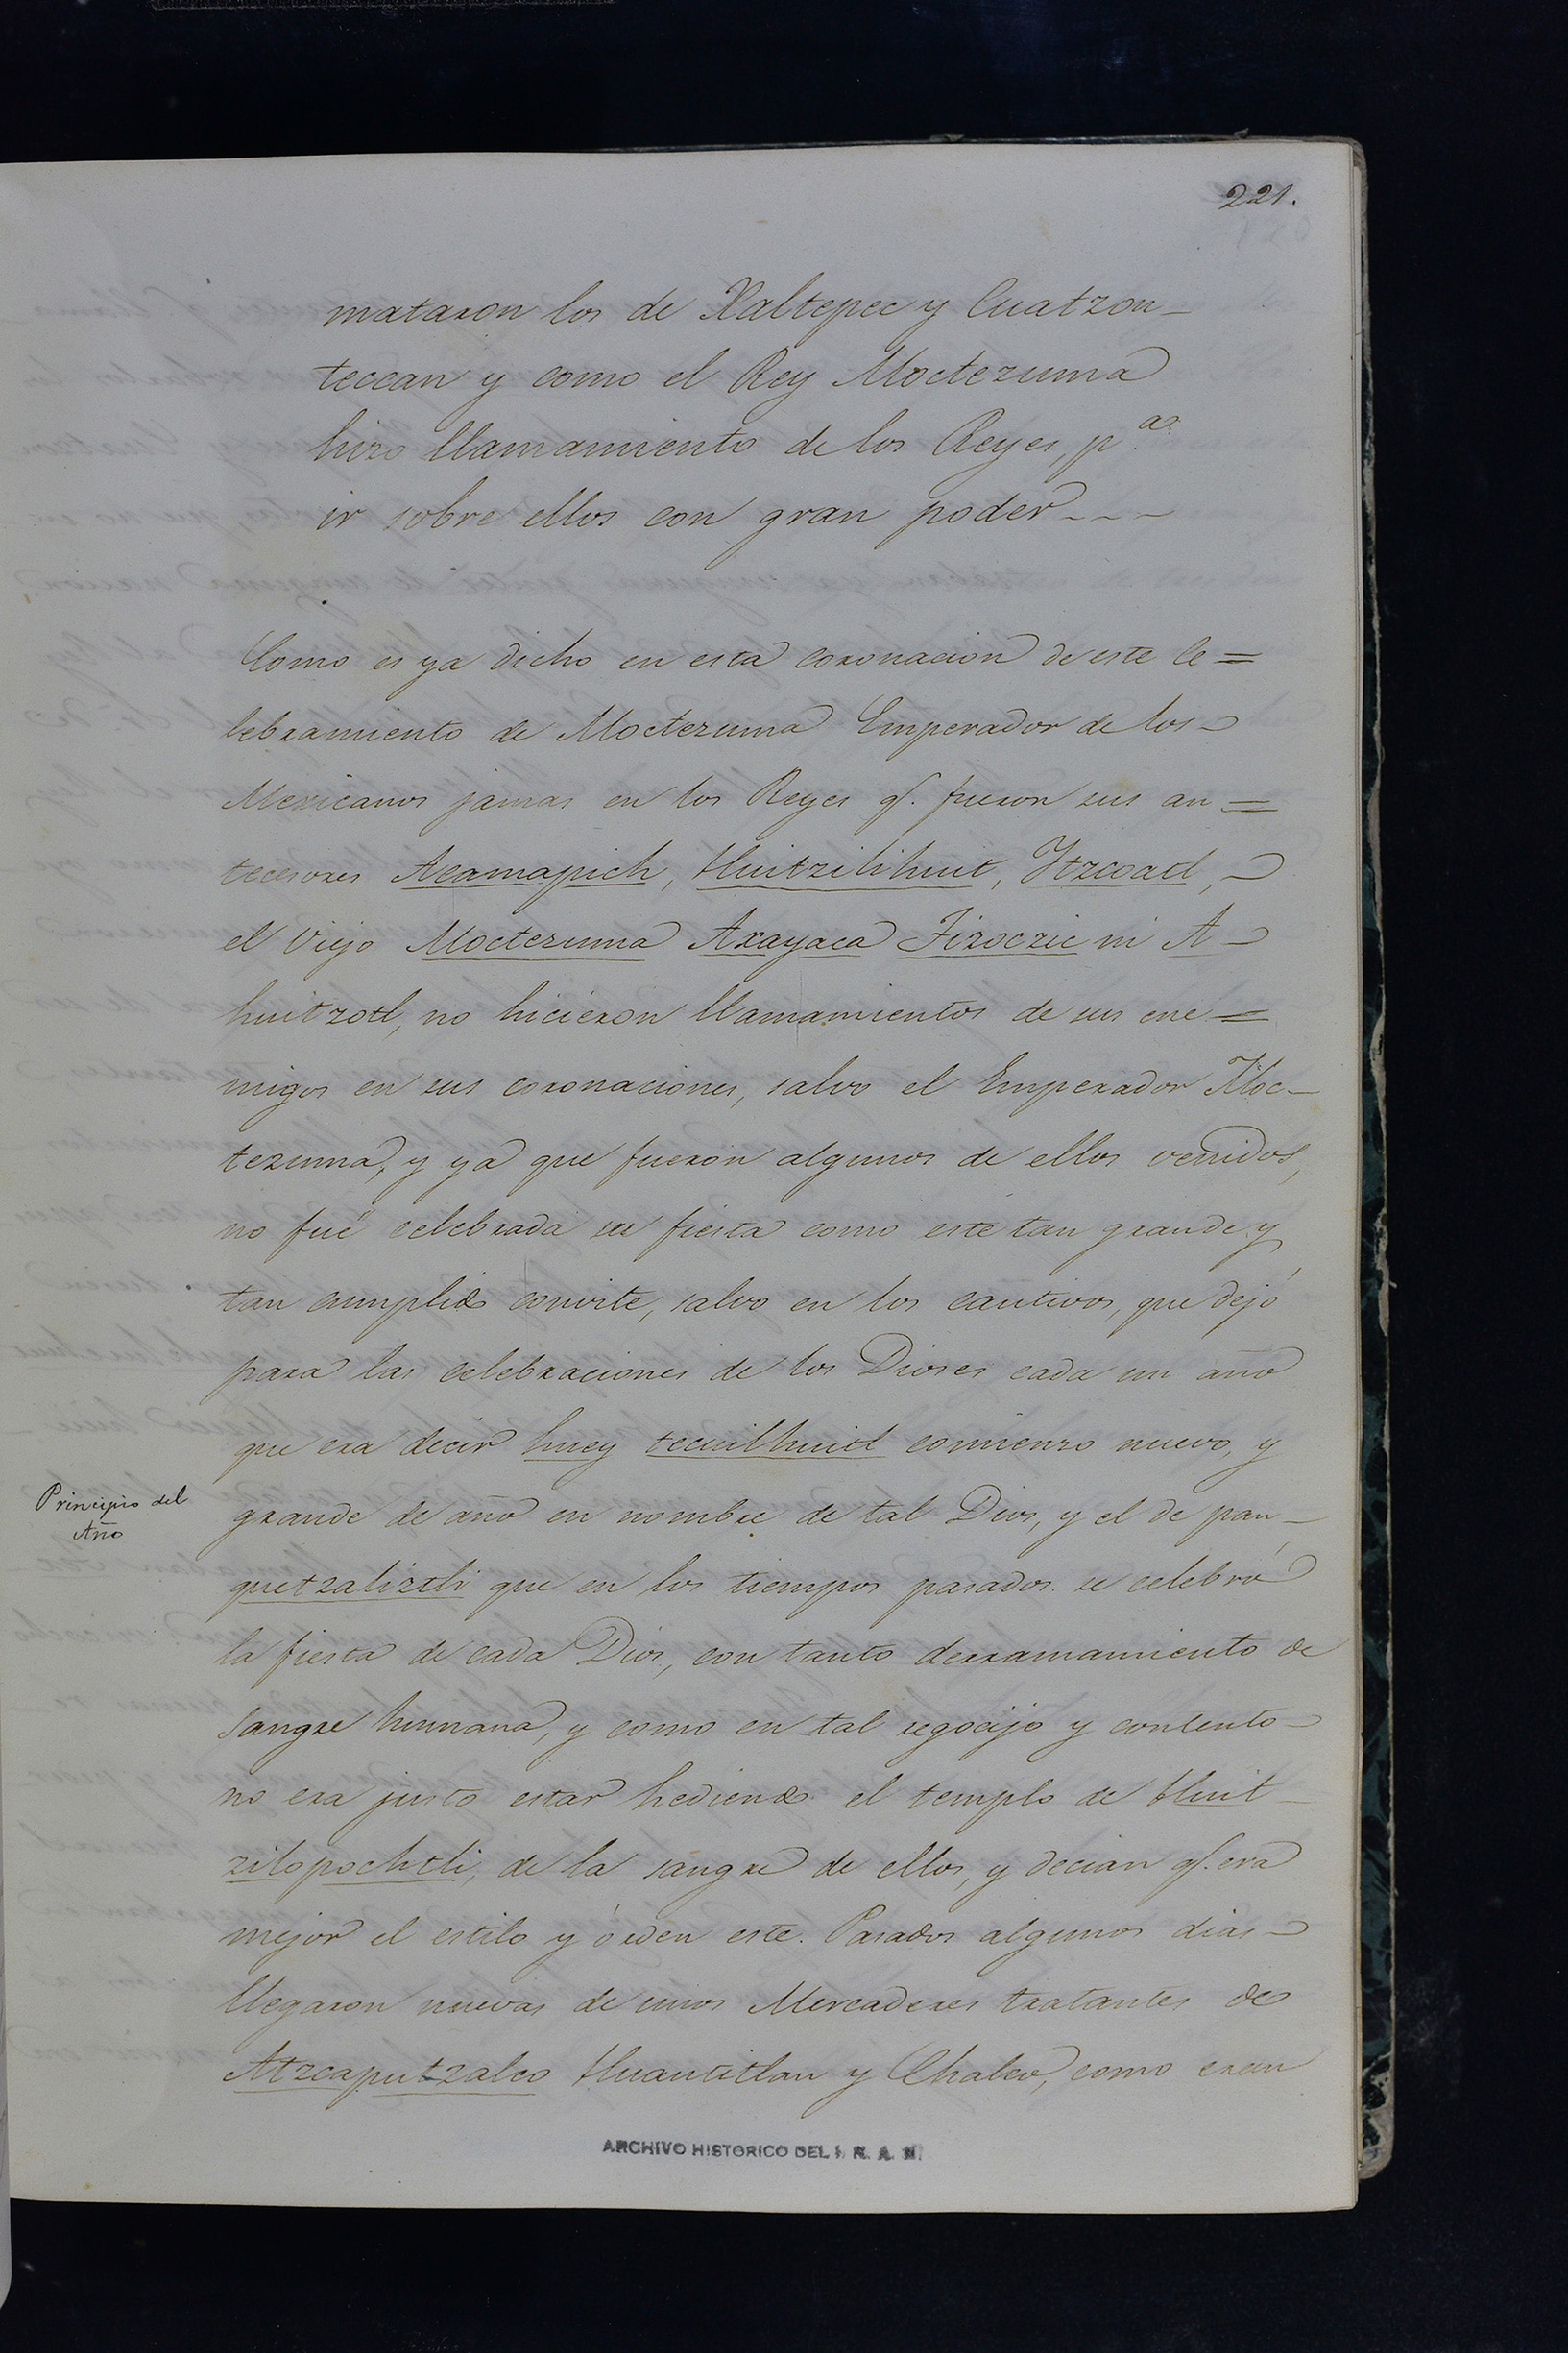 221.
mataron los de Xaltepec y Cuatzon-
teccan y como el Rey Moctezuma
hizo llamamiento de los Reyes, p.ª
ir sobre ellos con gran poder---
Como es ya dicho en esta coronacion de este ce=
lebramiento de Moctezuma Emperador de los-
Mexicanos jamas en los Reyes q. fueron sus an=
tecesores Acamapich, Huitzilihuit, Ytzcoatl,-
el Viejo Moctezuma Axayaca Tizoczic ni A-
huitzotl, no hicieron llamamientos de sus ene=
migos en sus coronaciones, salvo el Emperador Moc-
tezuma, y ya que fueron algunos de ellos venidos,
no fué celebrada su fiesta como este tan grande y
tan cumplido convite, salvo en los cautivos, que dejó
para las celebraciones de los Dioses cada un año
que era decir huey tecuilhuitl comienzo nuevo, y
Principio del
Año
grande de año en nombre de tal Dios, y el de pan-
quetzaliztli que en los tiempos pasados se celebró
la fiesta de cada Dios, con tanto derramamiento de
sangre humana, y como en tal regocijo y contento-
no era justo estar hediendo el templo de Huit-
zilopochtli, de la sangre de ellos, y decian q. era
mejor el estilo y órden este. Pasados algunos dias-
llegaron nuevas de unos Mercaderes tratantes de
Atzcaputzalco Huautitlan y Chalco, como eran
ARCHIVO HISTORICO DEL I. N. A. H.